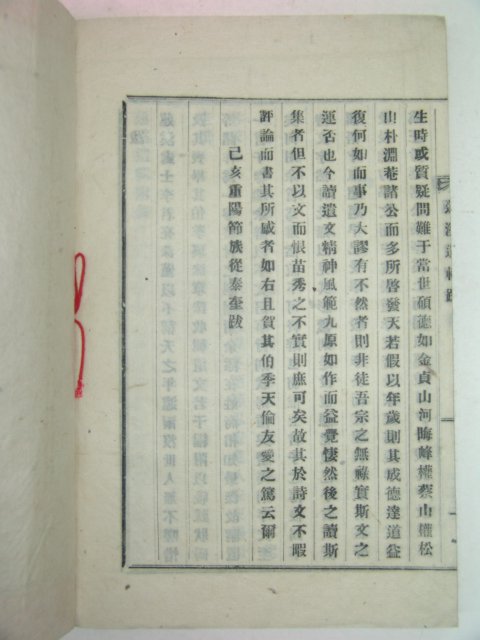 生時或質疑問難于當世碩德如金貞山河晦峰權蔡山權松
山朴淵菴諸公而多所啓發天若假以年歲則其成德達道益
復何如而事乃大謬有不然者則非徒吾宗之無祿實斯文之
運否也今讀遺文精神風範九原如作而益覺悽然後之讀斯
集者但不以文而恨苗秀之不實則庶可矣故其於詩文不暇
評論而書其所感者如右且賀其伯季天倫友愛之篤云爾
己亥重陽節族從泰奎跋
遺稿跋